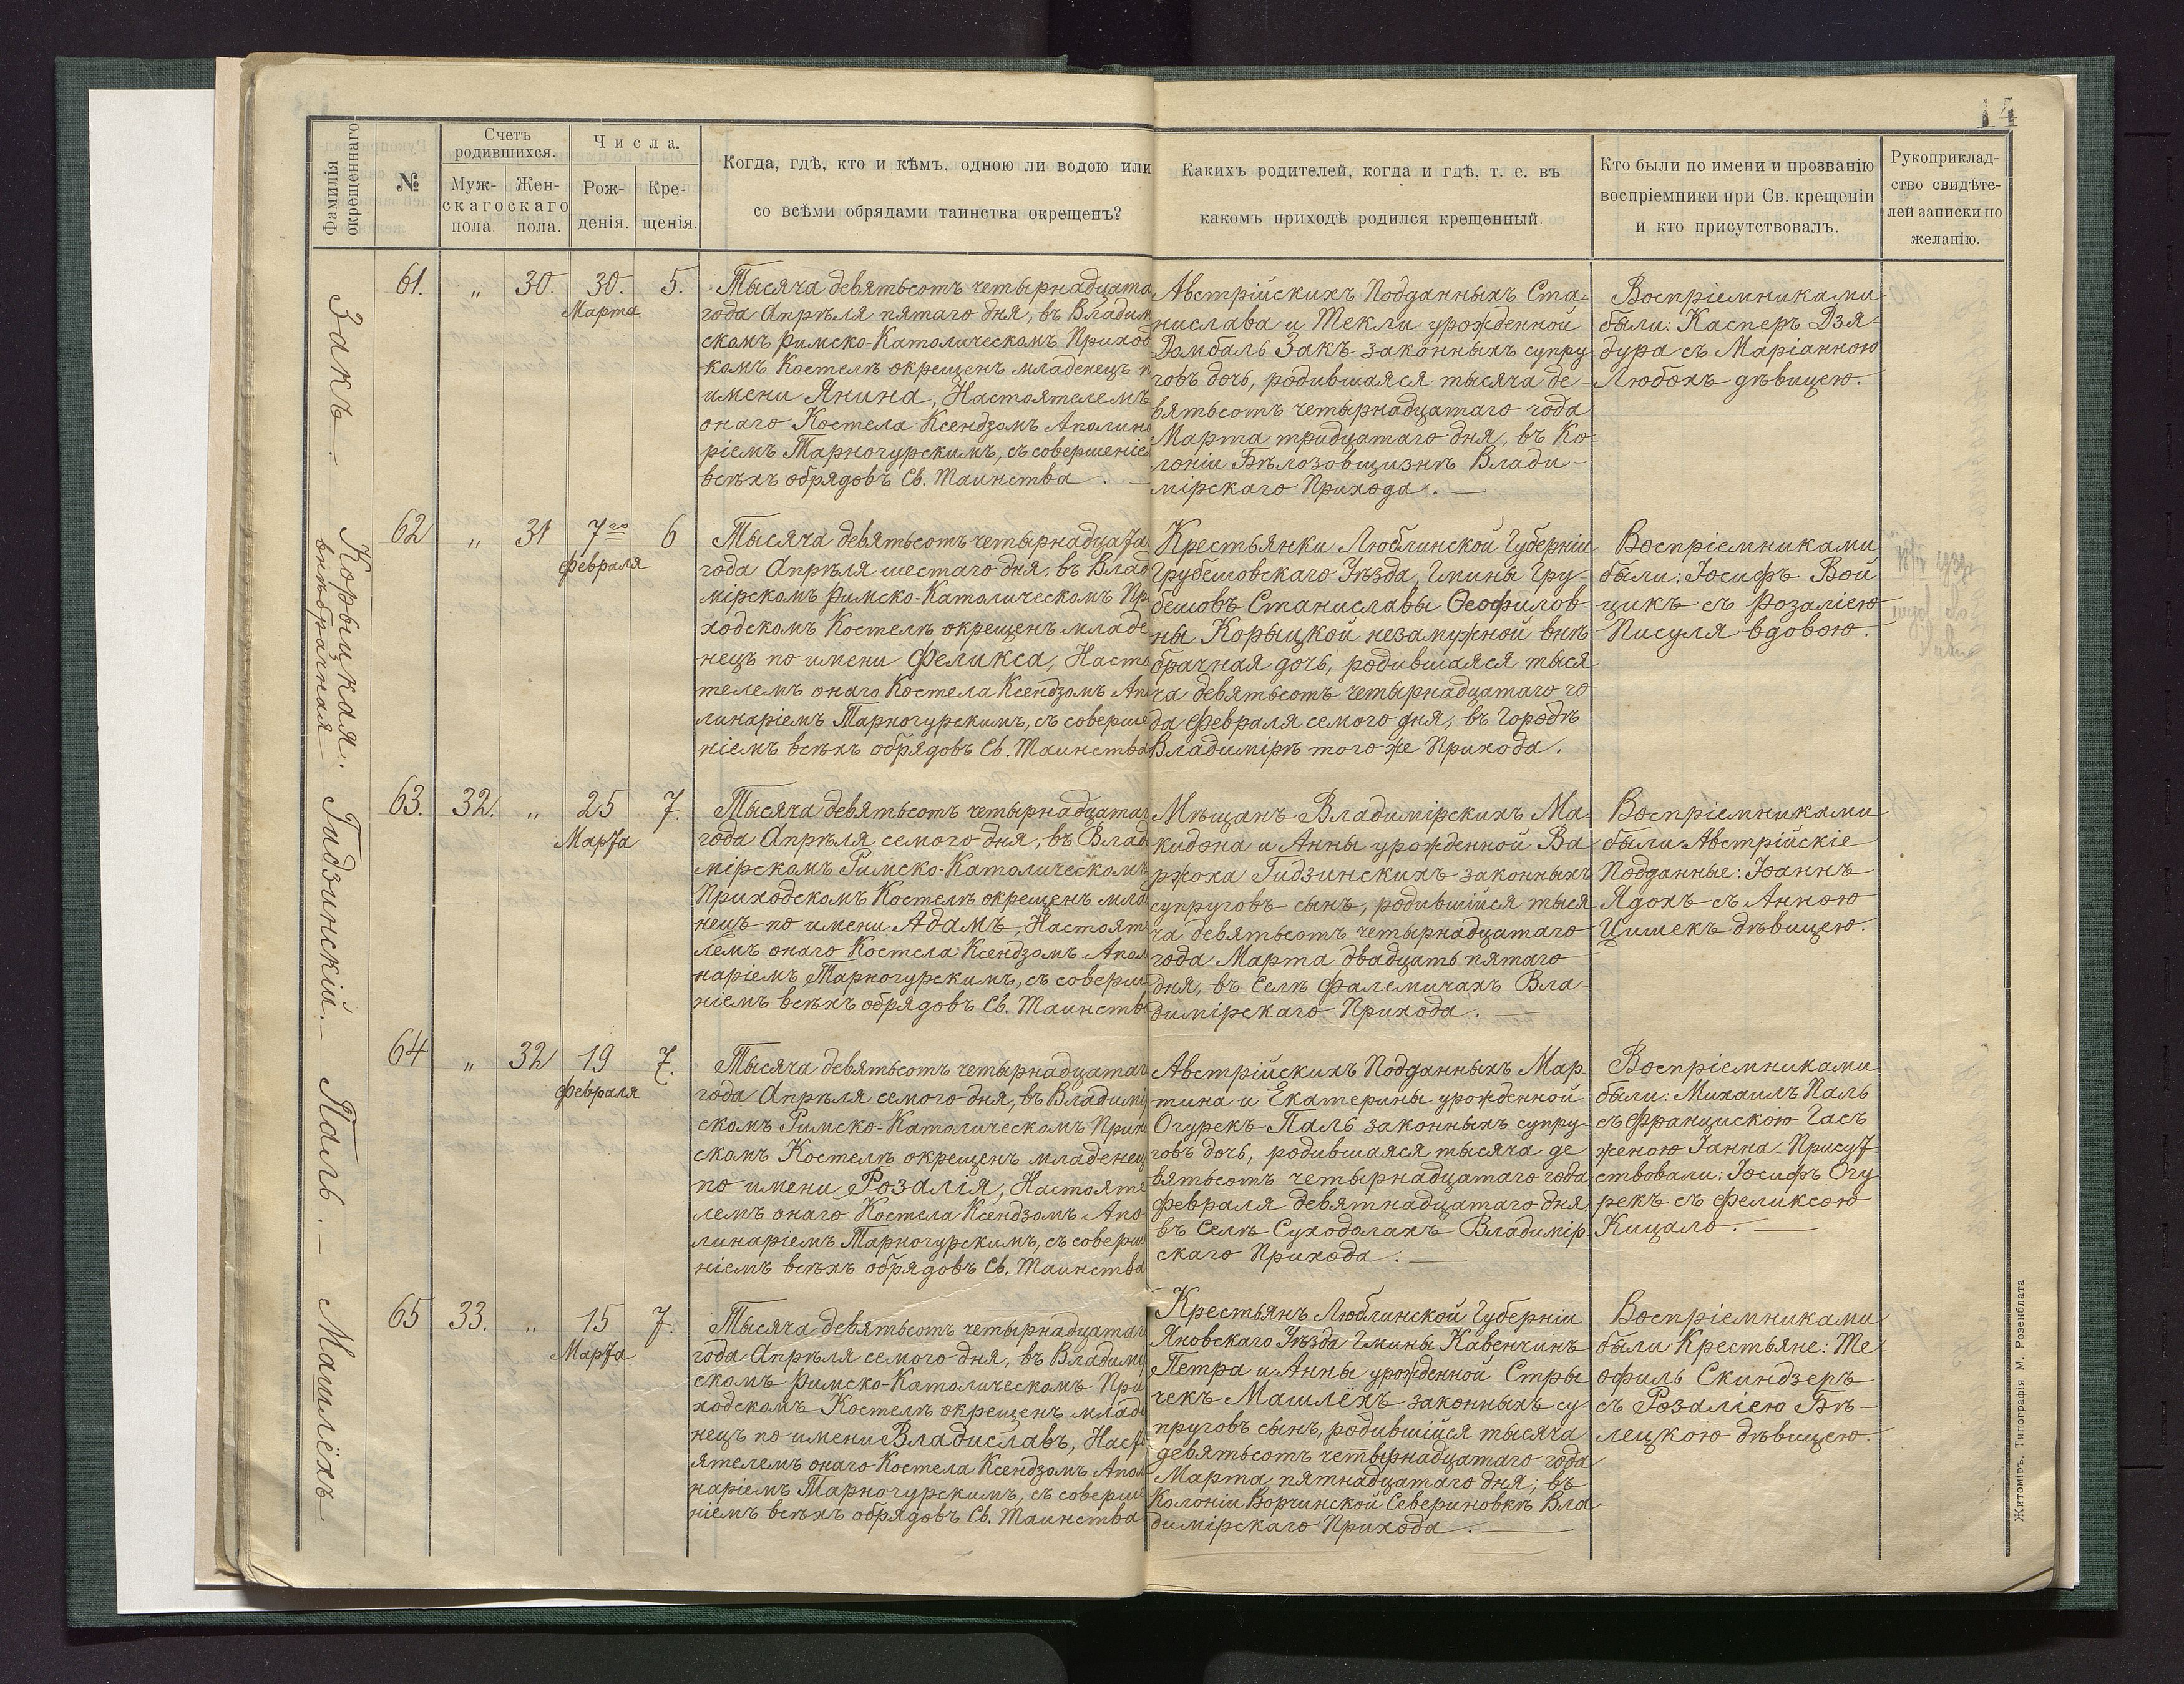 14
Фамилія окрещеннаго
№
Счетъ родившихся.
Муж-
скаго
пола.
Жен-
скаго
пола.
Числа.
Рож-
денія.
Кре-
щенія.
Когда, гдѣ, кто и кѣмъ, одною ли водою или
со всѣми обрядами таинства окрещенъ?
Какихъ родителей, когда и гдѣ, т. е. въ
какомъ приходѣ родился крещенный.
Кто были по имени и прозванію
воспріемники при Св. крещеніи
и кто присутствовалъ.
Рукоприклад-
ство свидѣте-
лей записки по
желанію.
Закъ.
61. „ 30. 30. 5.
Марта
Тысяча девятьсотъ четырнадцата
года Апрѣля пятаго дня, въ Владим
скомъ Римско-Католическомъ Приход
комъ Костелѣ окрещенъ младенецъ п
имени Янина, Настоятелемъ
онаго Костела Ксендзомъ Аполин
ріемъ Тарногурскимъ, съ совершеніе
всѣхъ обрядовъ Св. Таинства. —
Австрійскихъ Подданныхъ Ста-
нислава и Текли урожденной
Домбаль Закъ законныхъ супру
говъ дочь, родившаяся тысяча де-
вятьсотъ четырнадцатаго года
Марта тридцатаго дня, въ Ко-
лоніи Бѣлозовщизнѣ Влади-
мірскаго Прихода. —
Воспріемниками
были: Касперъ Дзя-
дура съ Маріанною
Любохъ дѣвицею.
Корыцкая.
внѣбрачная
62 „ 31 7го 6
Февраля
Тысяча девятьсотъ четырнадцата
года Апрѣля шестаго дня, въ Влад
мірскомъ Римско-Католическомъ Пр
ходскомъ Костелѣ окрещенъ младе
нецъ по имени Феликса, Насто
телемъ онаго Костела Ксендзомъ Ап
линаріемъ Тарногурскимъ, съ соверше
ніемъ всѣхъ обрядовъ Св. Таинства
Крестьянки Люблинской Губерніи
Грубешовскаго Уѣзда, Гмины Гру-
бешовъ Станиславы Ѳеофилов-
ны Корыцкой незамужной внѣ
брачная дочь, родившаяся тыся
ча девятьсотъ четырнадцатаго го
да Февраля семого дня, въ Городѣ
Владимірѣ того же Прихода.
Воспріемниками
были: Іосифъ Вой
цикъ съ Розаліею
Писуля вдовою.
Гидзинскій.
63. 32. „ 25 7.
Марта
Тысяча девятьсотъ четырнадцатаг
года Апрѣля семого дня, въ Влад
мірскомъ Римско-Католическомъ
Приходскомъ Костелѣ окрещенъ мла
нецъ по имени Адамъ, Настоят
лемъ онаго Костела Ксендзомъ Апол
наріемъ Тарногурскимъ, съ соверш
ніемъ всѣхъ обрядовъ Св. Таинств
Мѣщанъ Владимірскихъ Ма-
кидона и Анны урожденной Ва
ржоха Гидзинскихъ законныхъ
супруговъ сынъ, родившійся тыся
ча девятьсотъ четырнадцатаго
года Марта двадцать пятаго
дня, въ Селѣ Фалемичахъ Вла-
димірскаго Прихода. —
Воспріемниками
были Австрійскіе
Подданные: Іоаннъ
Ядохъ съ Анною
Цишекъ дѣвицею.
Паль. —
64 „ 32 19 7.
Февраля
Тысяча девятьсотъ четырнадцатаг
года Апрѣля семого дня, въ Владимі
скомъ Римско-Католическомъ Прих
скомъ Костелѣ окрещенъ младенец
по имени Розалія, Настояте
лемъ онаго Костела Ксендзомъ Апо
линаріемъ Тарногурскимъ, съ соверш
ніемъ всѣхъ обрядовъ Св. Таинства
Австрійскихъ Подданныхъ Мар-
тина и Екатерины урожденной
Огурекъ Паль законныхъ супру-
говъ дочь, родившаяся тысяча де
вятьсотъ четырнадцатаго года
Февраля девятнадцатаго дня,
въ Селѣ Суходолахъ Владимір-
скаго Прихода. —
Воспріемниками
были: Михаилъ Паль
съ Францискою Гасъ
женою Іанна - Присут-
ствовали: Іосифъ Огу
рекъ съ Феликсою
Кицало. —
Машлёхъ
65 33. „ 15 7.
Марта
Тысяча девятьсотъ четырнадцатаг
года Апрѣля семого дня, въ Владими
скомъ Римско-Католическомъ При
ходскомъ Костелѣ окрещенъ млад
нецъ по имени Владиславъ, Наст
ятелемъ онаго Костела Ксендзомъ Апол
наріемъ Тарногурскимъ, съ соверше
ніемъ всѣхъ обрядовъ Св. Таинства
Крестьянъ Люблинской Губерніи
Яновскаго Уѣзда Гмины Кавенчинъ
Петра и Анны урожденной Стры
чекъ Машлёхъ законныхъ су-
пруговъ сынъ, родившійся тысяча
девятьсотъ четырнадцатаго года
Марта пятнадцатаго дня, въ
Колоніи Ворчинской Севериновкѣ Вла-
димірскаго Прихода. —
Воспріемниками
были Крестьяне: Те-
офиль Скиндзеръ
съ Розаліею Бѣ-
лецкою дѣвицею.
Житоміръ, Типографія М. Розенблата